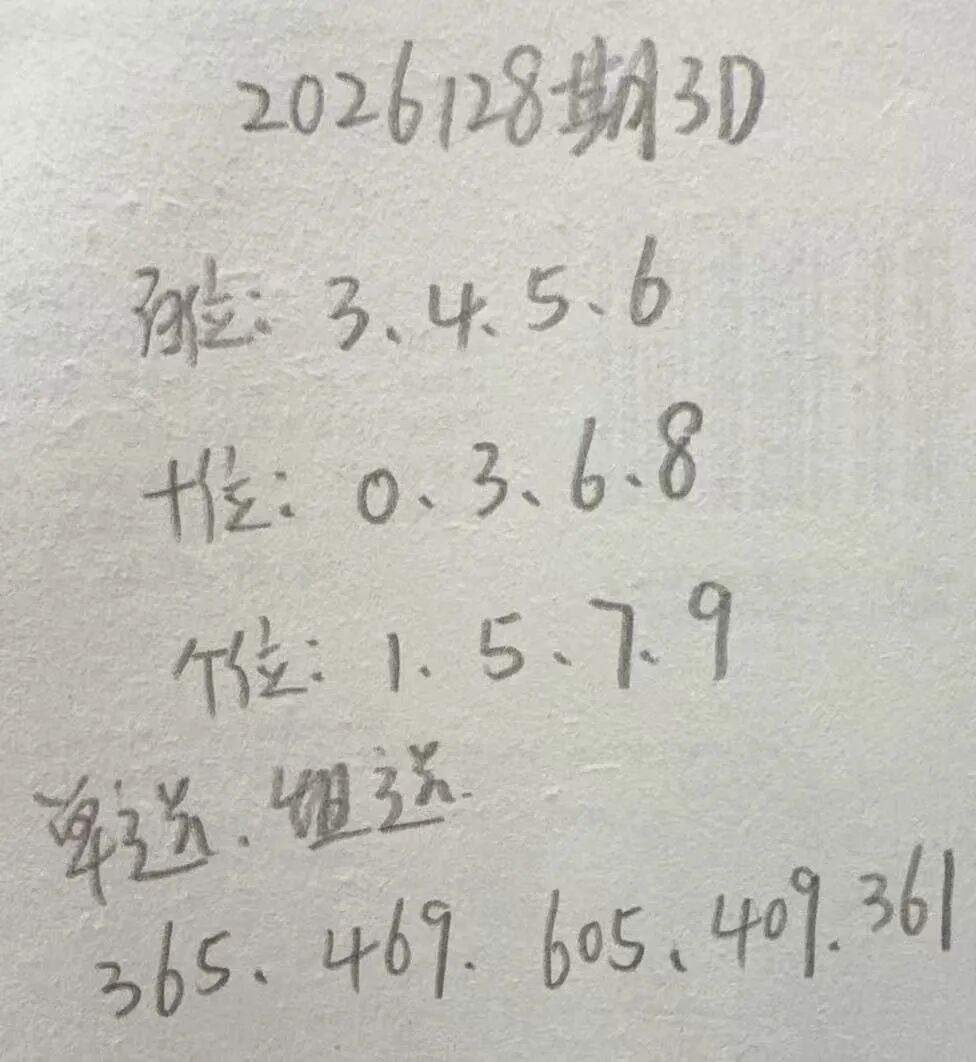 2026128期3D
百位：3、4、5、6
十位：0、3、6、8
个位：1、5、7、9
单选、组选
365、469、605、409、361